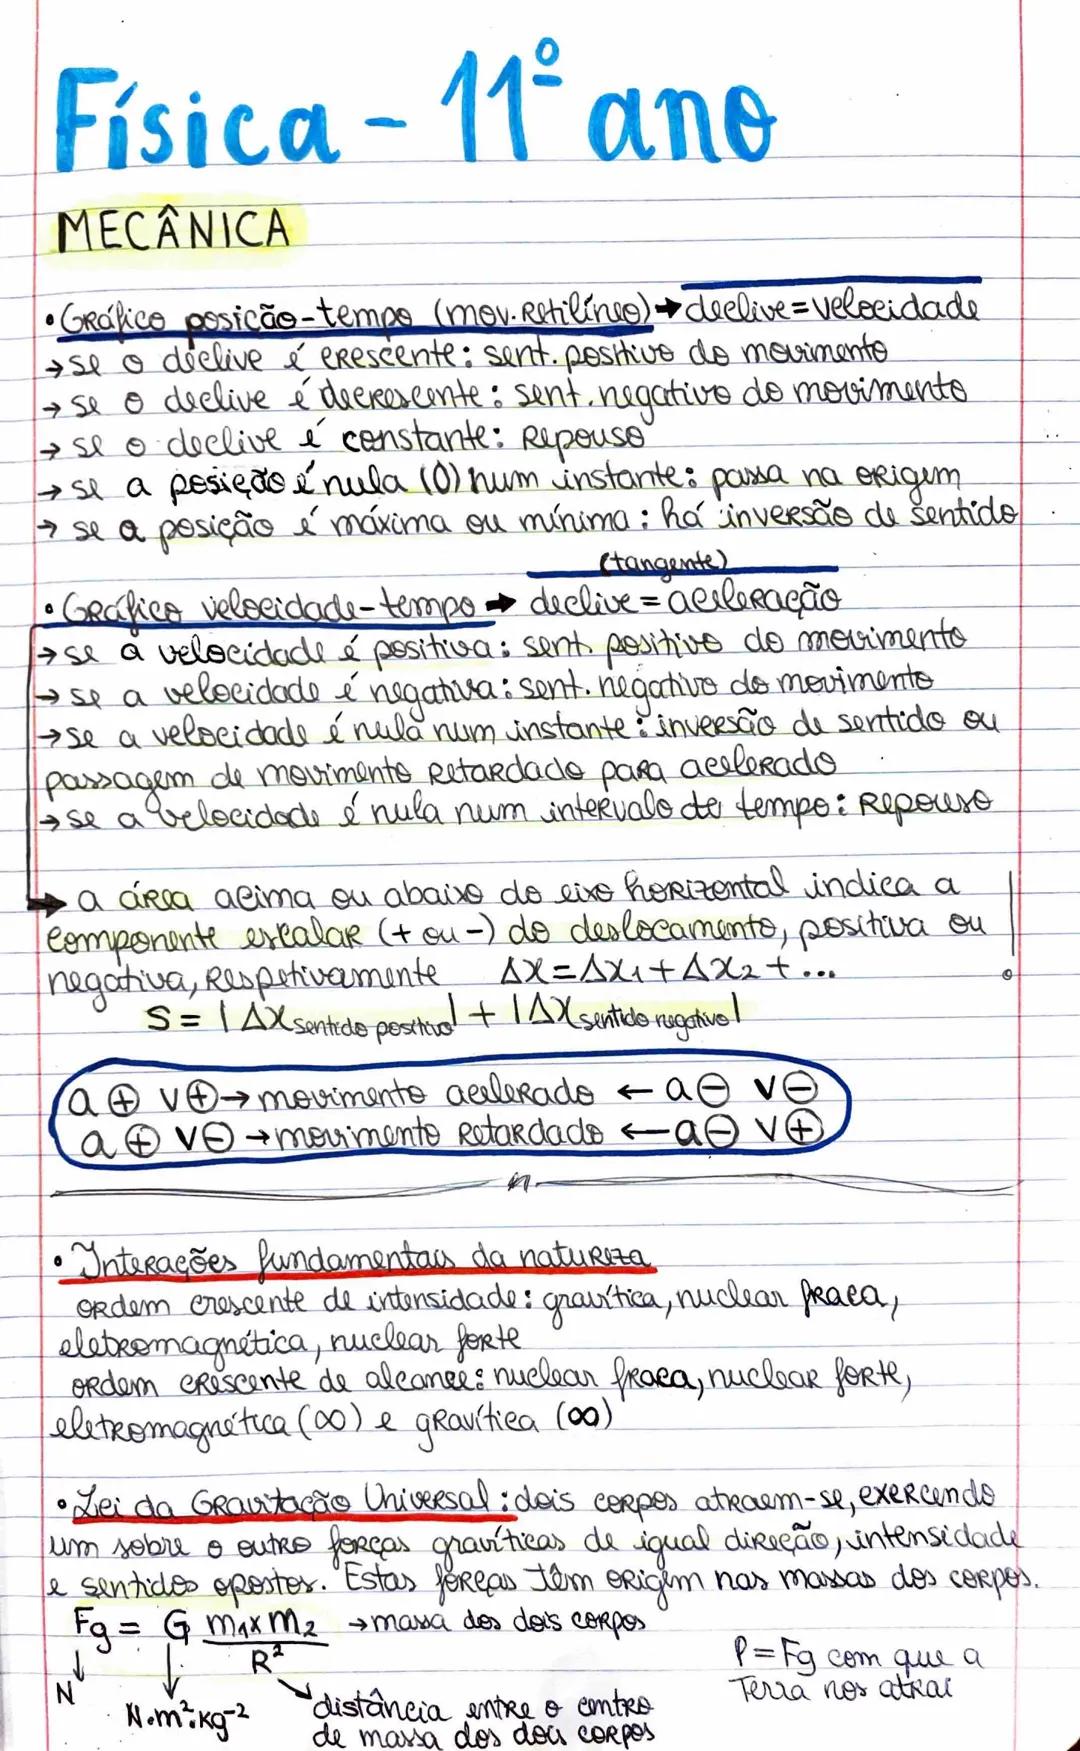 Física - 11º ano
MECÂNICA
• Gráfico posição-tempo (mov. Retilíneo) → declive = velocidade
→ se o declive é crescente: sent. positivo do movimento
→ se o declive é decrescente: sent. negativo do movimento
→ se o declive é constante: Repouso
→ se a posição é nula (0) num instante: passa na origem
→ se a posição é máxima ou mínima: há inversão de sentido
(tangente)
• Gráfico velocidade-tempo → declive = aceleração
→ se a velocidade é positiva: sent. positivo do movimento
→ se a velocidade é negativa: sent. negativo do movimento
→ se a velocidade é nula num instante: inversão de sentido ou
passagem de movimento Retardado para acelerado
→ se a velocidade é nula num intervalo de tempo: Repouso
→ a área acima ou abaixo do eixo horizontal indica a
componente escalar (+ ou -) do deslocamento, positiva ou
negativa, Respetivamente Δx = Δx₁ + Δx₂ + ...
S = |Δx sentido positivo| + |Δx sentido negativo|
a ⊕ v ⊕ → movimento acelerado ← a ⊖ v ⊖
a ⊕ v ⊖ → movimento Retardado ← a ⊖ v ⊕
• Interações fundamentais da natureza
ordem crescente de intensidade: gravítica, nuclear fraca,
eletromagnética, nuclear forte
ordem crescente de alcance: nuclear fraca, nuclear forte,
eletromagnética (∞) e gravítica (∞)
• Lei da Gravitação Universal: dois corpos atraem-se, exercendo
um sobre o outro forças gravíticas de igual direção, intensidade
e sentidos opostos. Estas forças têm origem nas massas dos corpos.
Fg = G m₁ x m₂ → massa dos dois corpos
R²
P = Fg com que a
Terra nos atrai
↓ N
↓ N.m².kg⁻²
distância entre o centro
de massa dos dois corpos